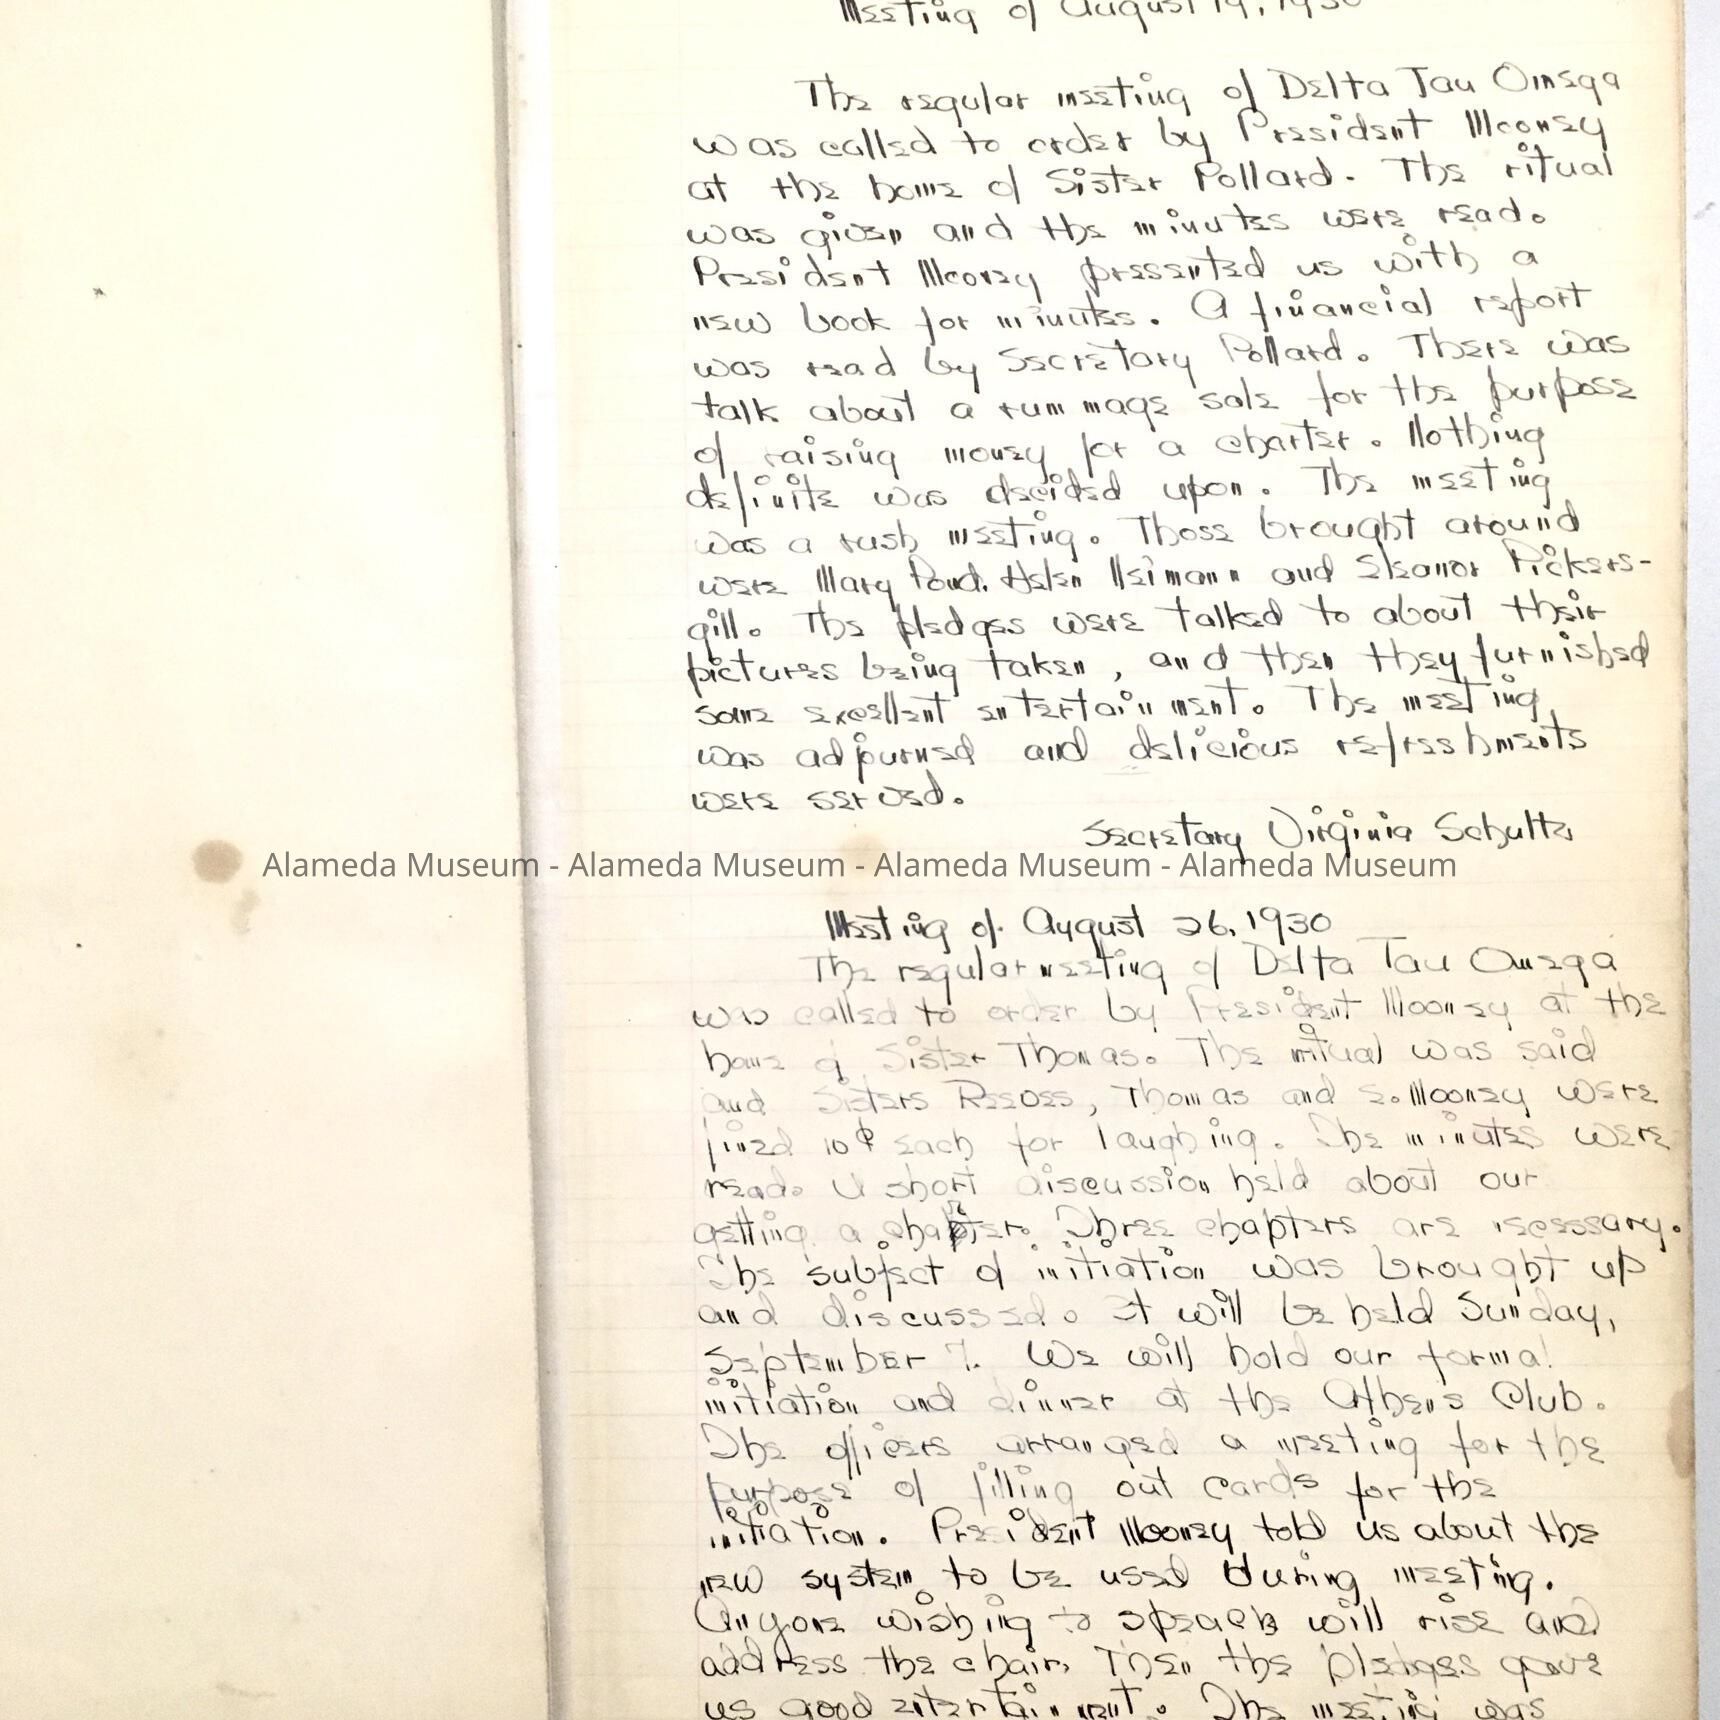 Meeting of August 19, 1930
The regular meeting of Delta Tau Omega
was called to order by President Mooney
at the home of Sister Pollard. The ritual
was given and the minutes were read.
President Mooney presented us with a
new book for minutes. A financial report
was read by Secretary Pollard. There was
talk about a rummage sale for the purpose
of raising money for a charter. Nothing
definite was decided upon. The meeting
was a rush meeting. Those brought around
were Mary Pond, Helen Neimann and Eleanor Pickers-
gill. The pledges were talked to about their
pictures being taken, and then they furnished
some excellent entertainment. The meeting
was adjourned and delicious refreshments
were served.
Secretary Virginia Schultz
Alameda Museum - Alameda Museum - Alameda Museum - Alameda Museum
Meeting of August 26, 1930
The regular meeting of Delta Tau Omega
was called to order by President Mooney at the
home of Sister Thomas. The ritual was said
and Sisters Reeves, Thomas and E. Mooney were
fined 10¢ each for laughing. The minutes were
read. A short discussion held about our
getting a charter. Three chapters are necessary.
The subject of initiation was brought up
and discussed. It will be held Sunday,
September 7. We will hold our formal
initiation and dinner at the Athens Club.
The officers arranged a meeting for the
purpose of filling out cards for the
initiation. President Mooney told us about the
new system to be used during meeting.
Anyone wishing to speack will rise and
address the chair. Then the pledges gave
us good entertainment. The meeting was